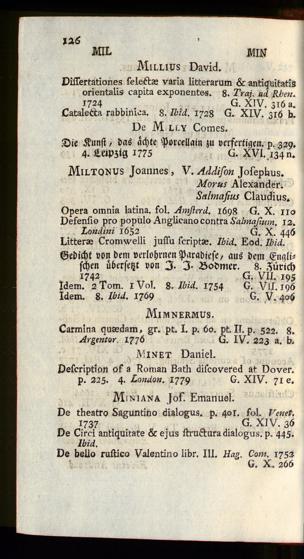 126
MIL MIN
MILLIUS David.
Dissertationes selectæ varia litterarum & antiquitatis
orientalis capita exponentes. 8. Traj. ad Rhen.
1724 G. XIV. 316 a.
Catalecta rabbinica. 8. Ibid. 1728 G. XIV. 316 b.
De MILLY Comes.
Die Kunst, das ächte Porcellain zu verfertigen. p. 329.
4. Leipzig 1775 G. XVI. 134 n.
MILTONUS Joannes, V. Addison Josephus.
Morus Alexander.
Salmasius Claudius.
Opera omnia latina. fol. Amsterd. 1698 G. X. 110
Defensio pro populo Anglicano contra Salmasium. 12.
Londini 1652 G. X. 446
Litteræ Cromwelli jussu scriptæ. Ibid. Eod. Ibid.
Gedicht von dem verlohrnen Paradiese, aus dem Engli-
schen übersetzt von J. J. Bodmer. 8. Zürich
1742 G. VII. 195
Idem. 2 Tom. 1 Vol. 8. Ibid. 1754 G. VII. 196
Idem. 8. Ibid. 1769 G. V. 406
MIMNERMUS.
Carmina quædam, gr. pt. I. p. 60. pt. II. p. 522. 8.
Argentor. 1776 G. IV. 223 a. b.
MINET Daniel.
Description of a Roman Bath discovered at Dover.
p. 225. 4. London. 1779 G. XIV. 71 e.
MINIANA Jos. Emanuel.
De theatro Saguntino dialogus. p. 401. fol. Venet.
1737 G. XIV. 36
De Circi antiquitate & ejus structura dialogus. p. 445.
Ibid.
De bello rustico Valentino libr. III. Hag. Com. 1752
G. X. 266